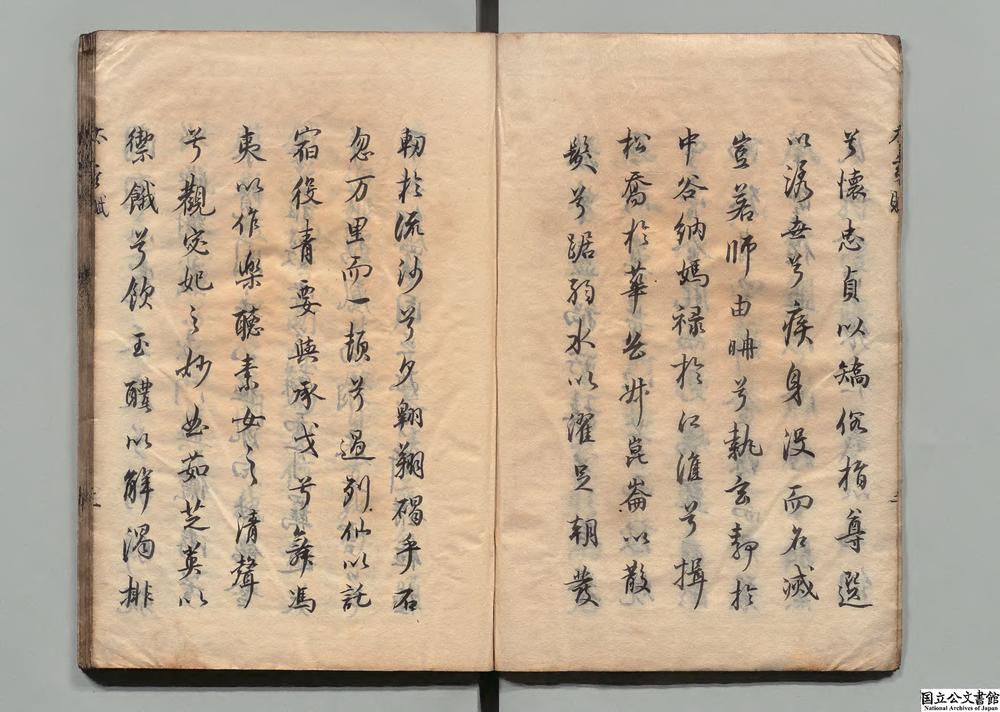 兮懷忠貞以矯俗指尊選
以誘世兮疾身没而名滅
豈若師由聃兮執玄静於
中谷納媽禄於江淮兮揖
松喬於華岳升崑崙以散
髮兮踞弱水以濯足朝發
軔於流沙兮夕翱翔碣乎石
忽万里而一頓兮過列仙以託
宿役青要與承戈兮舞馮
夷以作樂聴素女之清聲
兮觀宓妃之妙曲茹芝英以
禦餓兮飲玉醴以解渴排
国立公文書館
National Archives of Japan